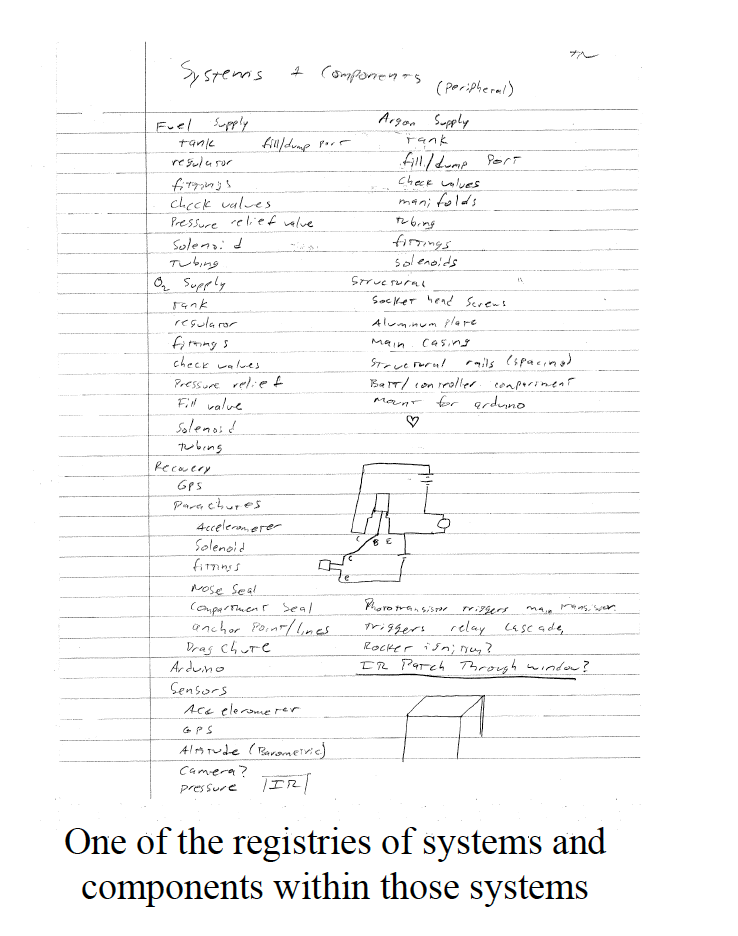 Systems & Components (Peripheral)
Fuel Supply
tank fill/dump port
regulator
fittings
check valves
Pressure relief valve
Solenoid
Tubing
O2 Supply
tank
regulator
fittings
check valves
Pressure relief
Fill valve
Solenoid
tubing
Recovery
GPS
Parachutes
Accelerometer
Solenoid
fittings
Nose Seal
Compartment Seal
anchor Point/lines
Drag Chute
Arduino
Sensors
Accelerometer
GPS
Altitude (Barometric)
Camera?
pressure IR
Argon Supply
Tank
fill/dump Port
Check valves
manifolds
tubing
fittings
solenoids
Structural
Socket head Screws
Aluminum Plate
Main Casing
Structural rails (spacing)
Batt/controller compartment
Mount for arduino
♡
C B E
C
e
Phototransistor triggers main transistor
triggers relay cascade,
Rocket ignition?
IR Patch Through window?
One of the registries of systems and
components within those systems